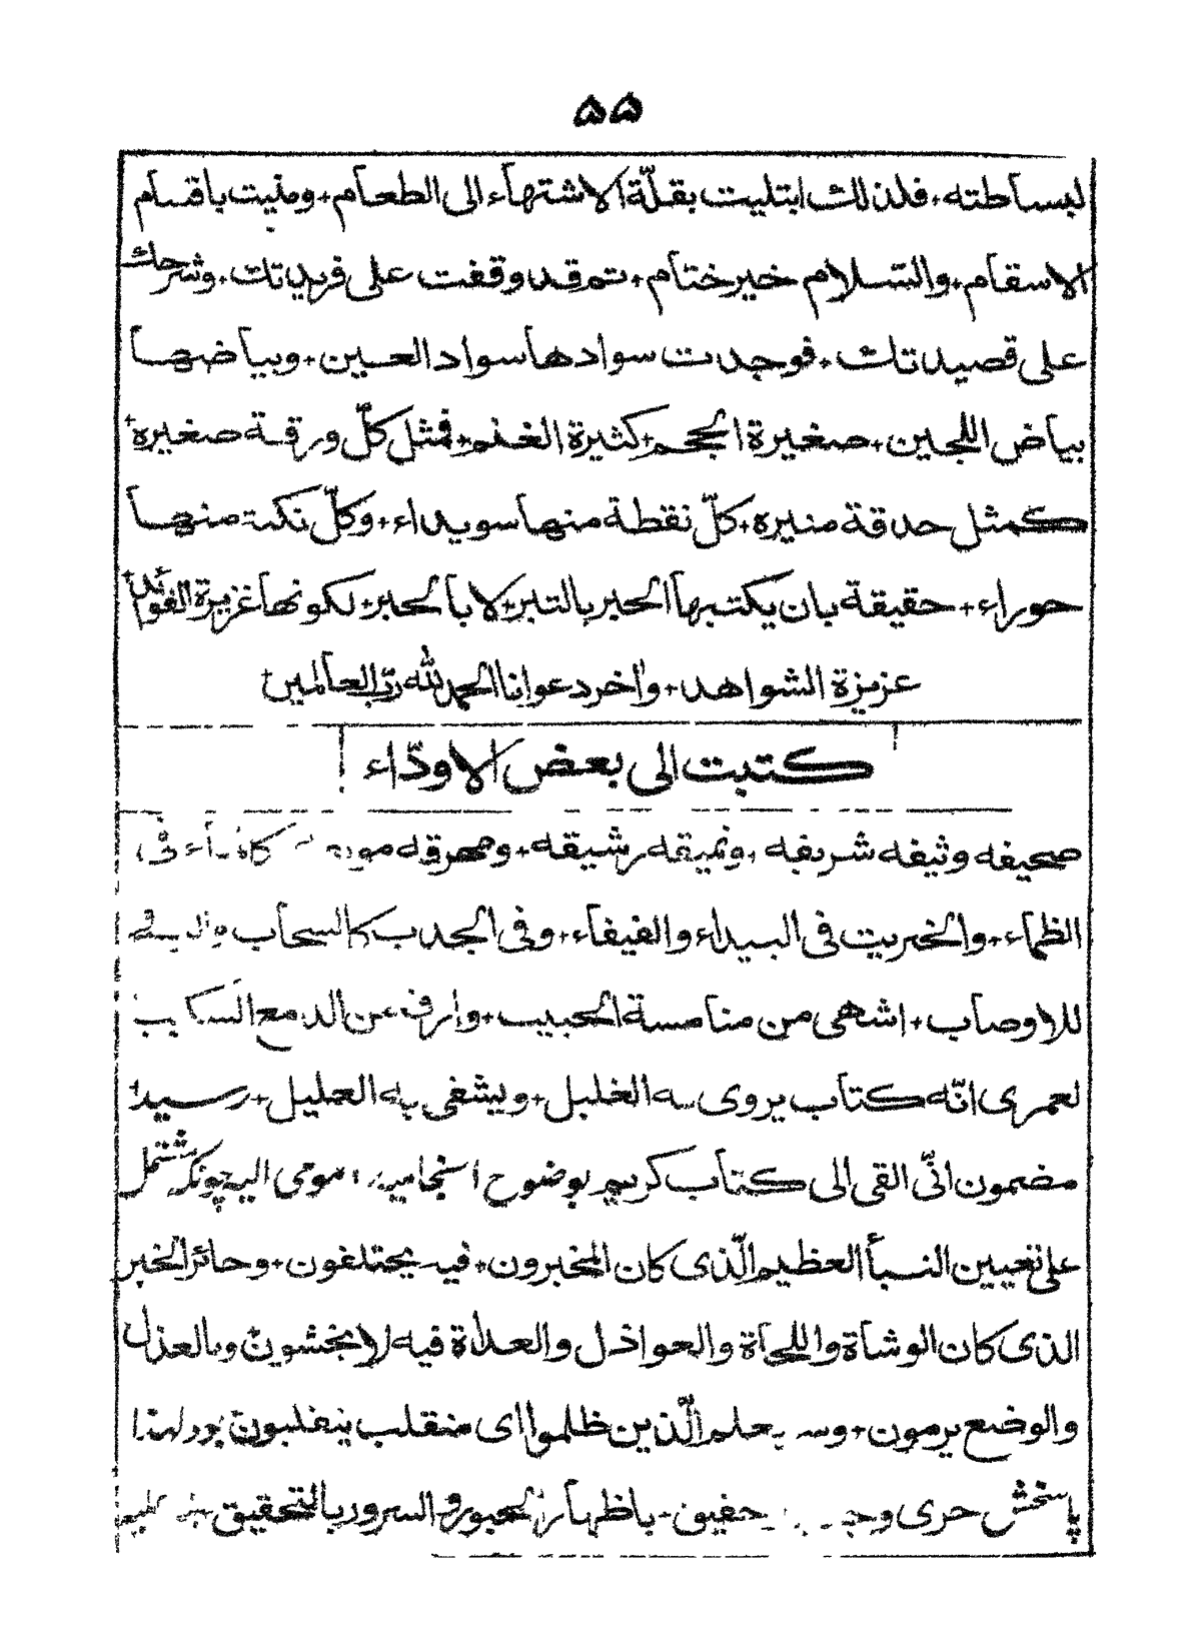 ۵۵
لبساطته + فلذلك ابتليت بقلّة الاشتهآء الى الطعام + ومنيت باقسام
الاسقام + والسّلام خير ختام + ثم قد وقفت على فريداتك + وشرحك
على قصيدتك + فوجدت سوادها سواد العين + وبياضها
بياض اللجين + صغيرة الحجم + كثيرة الغنم + فمثل كلّ ورقة صغيره +
كمثل حدقة منيره + كلّ نقطة منها سويداء + وكلّ نكتة منها
حوراء + حقيقة بان يكتبها الحبر بالتبر + لا بالحبر + لكونها غزيرة الفوائد +
عزيزة الشواهد + واخر دعوانا الحمد لله ربّ العالمين +
كتبت الى بعض الاودّاء
صحيفه وثيفه شريفه + ونميقه رشيقه + ومهرقه كالمآء فى
الظمآء + والخريت فى البيداء والفيفآء + وفى الجدب كالسحاب
للاوصاب + اشهى من منامسة الحبيب + وارق من الدمع السكيب
لعمرى انّه كتاب يروى به الغليل + ويشفى به العليل + رسيد +
مضمون انّى القى الى كتاب كريم بوضوح انجاميد + مومى اليه چونكه مشتمل
على تعيين النبأ العظيم الّذى كان المخبرون + فيه يختلفون + وحائز الخبر
الذى كان الوشاة واللحاة والعواذل والعداة فيه لا يخشون + وبالعذل
والوضع يرمون + وسيعلم الّذين ظلموا اى منقلب ينقلبون + بود لهذا
پاسخش حرى وحقيق + باظهار الحبور والسرور بالتحقيق